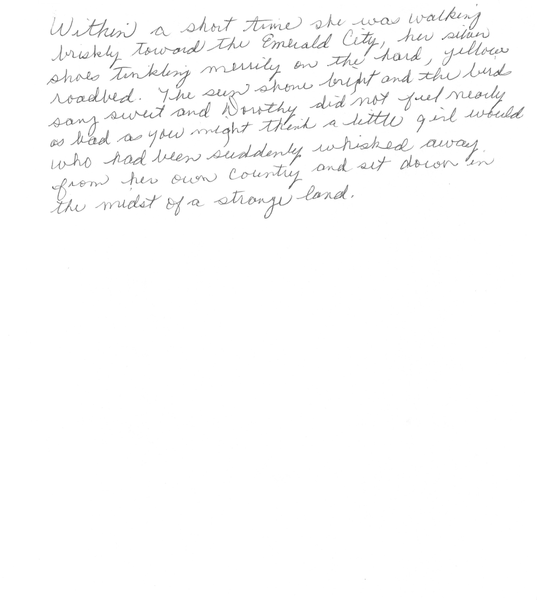 Within a short time she was walking
briskly toward the Emerald City, her silver
shoes tinkling merrily on the hard, yellow
roadbed. The sun shone bright and the birds
sang sweet and Dorothy did not feel nearly
as bad as you might think a little girl would
who had been suddenly whisked away
from her own country and set down in
the midst of a strange land.